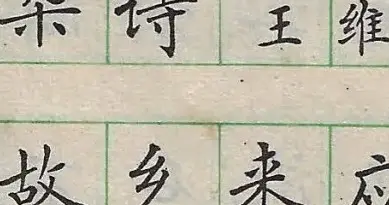 杂诗 王维
故乡来